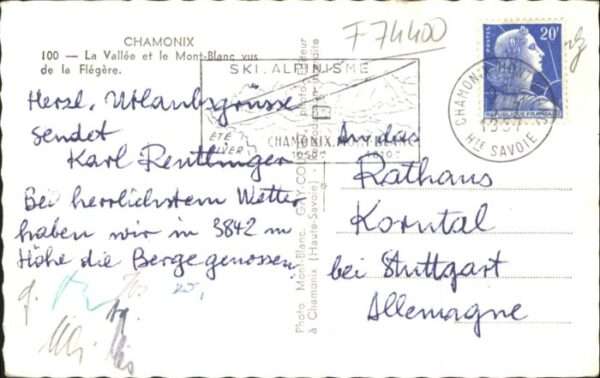 F 74400
CHAMONIX
100 — La Vallée et le Mont-Blanc vus
de la Flégère.
SKI. ALPINISME
ÉTÉ
HIVER
CHAMONIX. MONT-BLANC
POSTES
20F
REPUBLIQUE FRANCAISE
CHAMONIX-MONT
Hte SAVOIE
Herzl. Urlaubsgrüsse
sendet
Karl Reutlinger
Bei herrlichstem Wetter
haben wir in 3842 m
Höhe die Berge genossen
Photo Mont-Blanc.
à Chamonix (Haute-Savoie).
An das
Rathaus
Korntal
bei Stuttgart
Allemagne